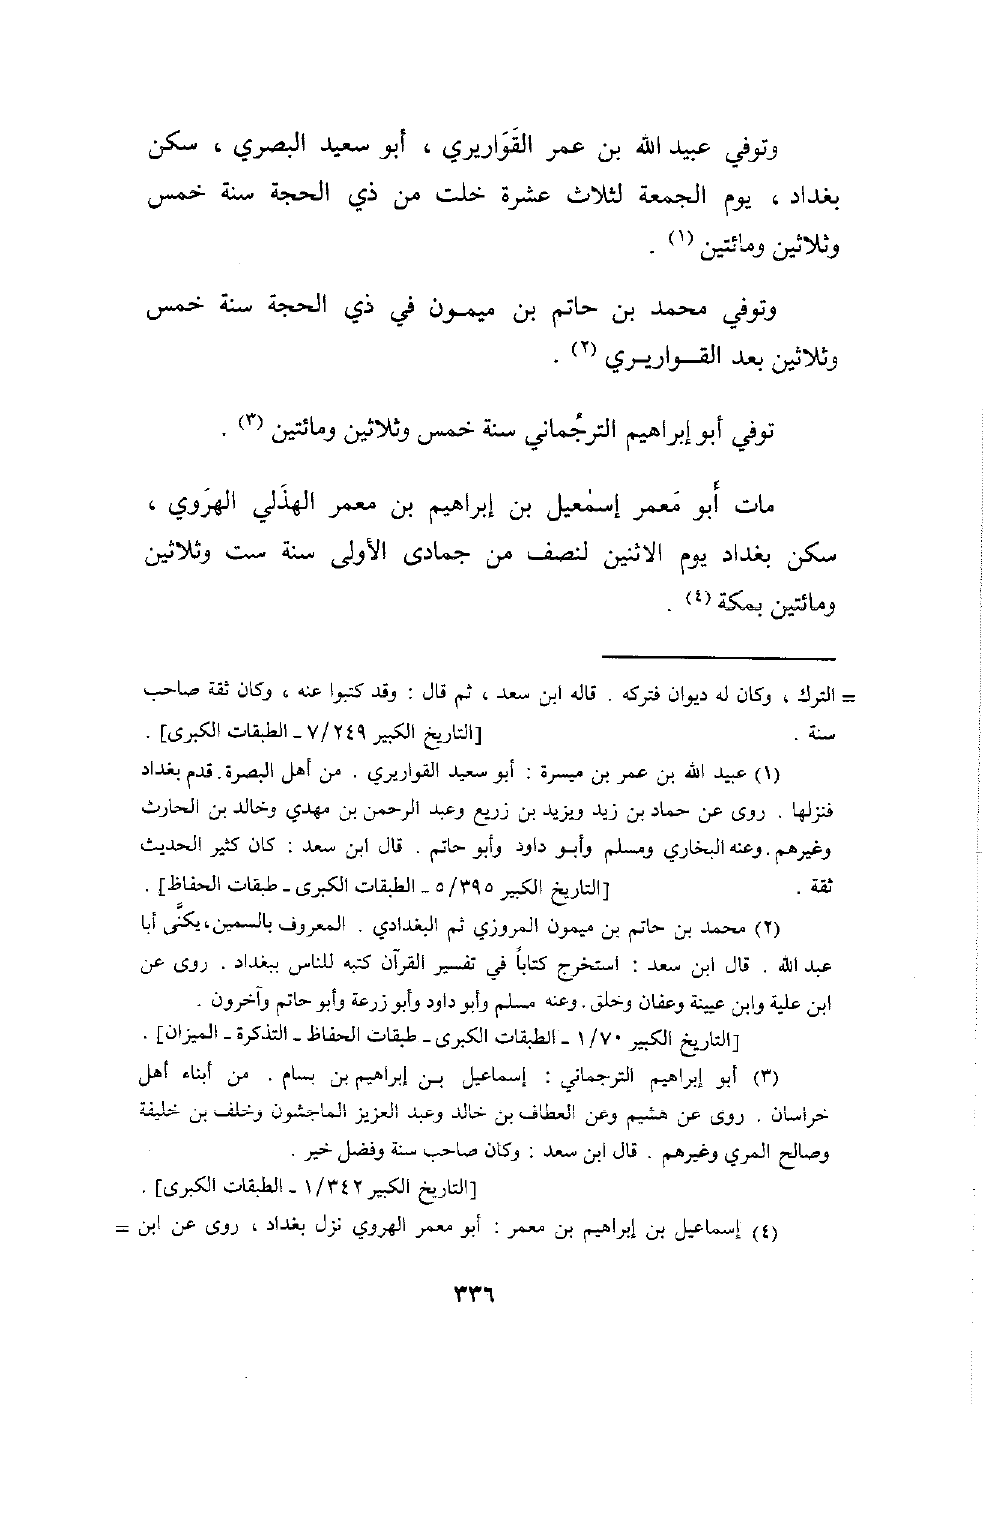 وتوفي عبيد الله بن عمر القَوَاريري ، أبو سعيد البصري ، سكن
بغداد ، يوم الجمعة لثلاث عشرة خلت من ذي الحجة سنة خمس
وثلاثين ومائتين (١) .
وتوفي محمد بن حاتم بن ميمون في ذي الحجة سنة خمس
وثلاثين بعد القواريري (٢) .
توفي أبو إبراهيم الترجُماني سنة خمس وثلاثين ومائتين (٣) .
مات أَبو مَعمر إسمٰعيل بن إبراهيم بن معمر الهذَلي الهرَوي ،
سكن بغداد يوم الاثنين لنصف من جمادى الأولى سنة ست وثلاثين
ومائتين بمكة (٤) .
= الترك ، وكان له ديوان فتركه . قاله ابن سعد ، ثم قال : وقد كتبوا عنه ، وكان ثقة صاحب
سنة . [التاريخ الكبير ٧/٢٤٩ ـ الطبقات الكبرى] .
(١) عبيد الله بن عمر بن ميسرة : أبو سعيد القواريري . من أهل البصرة. قدم بغداد
فنزلها . روى عن حماد بن زيد ويزيد بن زريع وعبد الرحمن بن مهدي وخالد بن الحارث
وغيرهم. وعنه البخاري ومسلم وأبو داود وأبو حاتم . قال ابن سعد : كان كثير الحديث
ثقة . [التاريخ الكبير ٥/٣٩٥ ـ الطبقات الكبرى ـ طبقات الحفاظ] .
(٢) محمد بن حاتم بن ميمون المروزي ثم البغدادي . المعروف بالسمين، يكنَّى أبا
عبد الله . قال ابن سعد : استخرج كتاباً في تفسير القرآن كتبه للناس ببغداد . روى عن
ابن علية وابن عيينة وعفان وخلق. وعنه مسلم وأبو داود وأبو زرعة وأبو حاتم وآخرون .
[التاريخ الكبير ١/٧٠ ـ الطبقات الكبرى ـ طبقات الحفاظ ـ التذكرة ـ الميزان] .
(٣) أبو إبراهيم الترجماني : إسماعيل بن إبراهيم بن بسام . من أبناء أهل
خراسان . روى عن هشيم وعن العطاف بن خالد وعبد العزيز الماجشون وخلف بن خليفة
وصالح المري وغيرهم . قال ابن سعد : وكان صاحب سنة وفضل خير .
[التاريخ الكبير ١/٣٤٢ ـ الطبقات الكبرى] .
(٤) إسماعيل بن إبراهيم بن معمر : أبو معمر الهروي نزل بغداد ، روى عن ابن =
٣٣٦